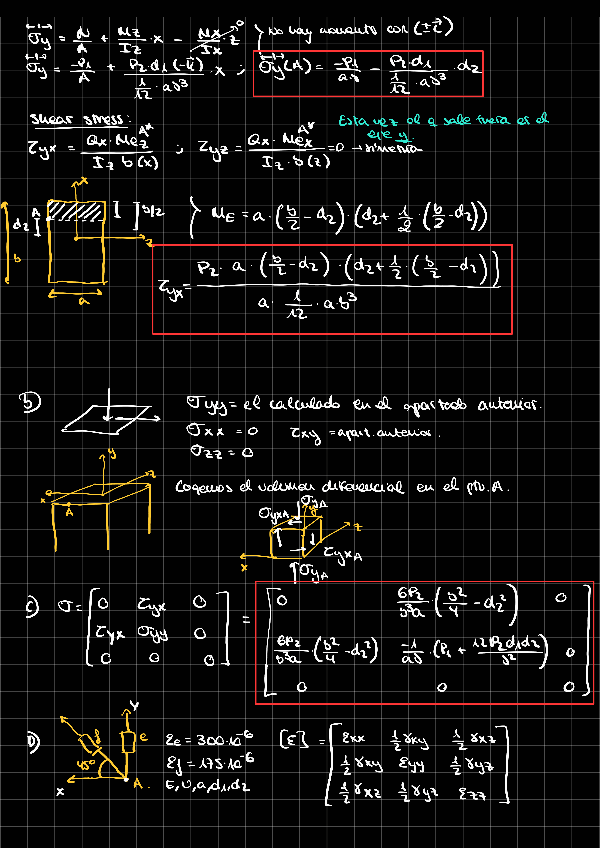 σy = N/A + Mz/Iz · x - Mx/Ix · z → 0 } no hay momento con (±z)
σy = -P1/A + P2·d1(-k)/(1/12 · ab³) · x ; σy(A) = -P1/ab - P2·d1/(1/12 · ab³) · d2
Shear stress:
Esta vez el q sale fuera es el eje y.
τyx = Qx · Mez^A*/(Iz b(x)) ; τyz = Qx · Mex^A*/(Iz · b(z)) = 0 → simetria
x
A
d2
b/2
z
b
a
} ME = a · (b/2 - d2) · (d2 + 1/2 · (b/2 - d2))
τyx = P2 · a · (b/2 - d2) · (d2 + 1/2 · (b/2 - d2))/(a · 1/12 · ab³)
b) σyy = el calculado en el apartado anterior.
σxx = 0 τxy = apart. anterior.
σzz = 0
y
z
x
A
Cogemos el volumen diferencial en el pto. A.
σyA
σyxA
y
z
x
τyxA
σyA
c) σ = [0 τyx 0 = [0 6P2/b³a · (b²/4 - d2²) 0
τyx σyy 0 6P2/b³a · (b²/4 - d2²) -1/ab · (P1 + 12P2d1d2/b²) 0
0 0 0] 0 0 0]
D) y
f
e
45º
x
A
εe = 300·10⁻⁶
εf = 175·10⁻⁶
E, υ, a, d1, d2
[ε] = [εxx 1/2 γxy 1/2 γxz
1/2 γxy εyy 1/2 γyz
1/2 γxz 1/2 γyz εzz]